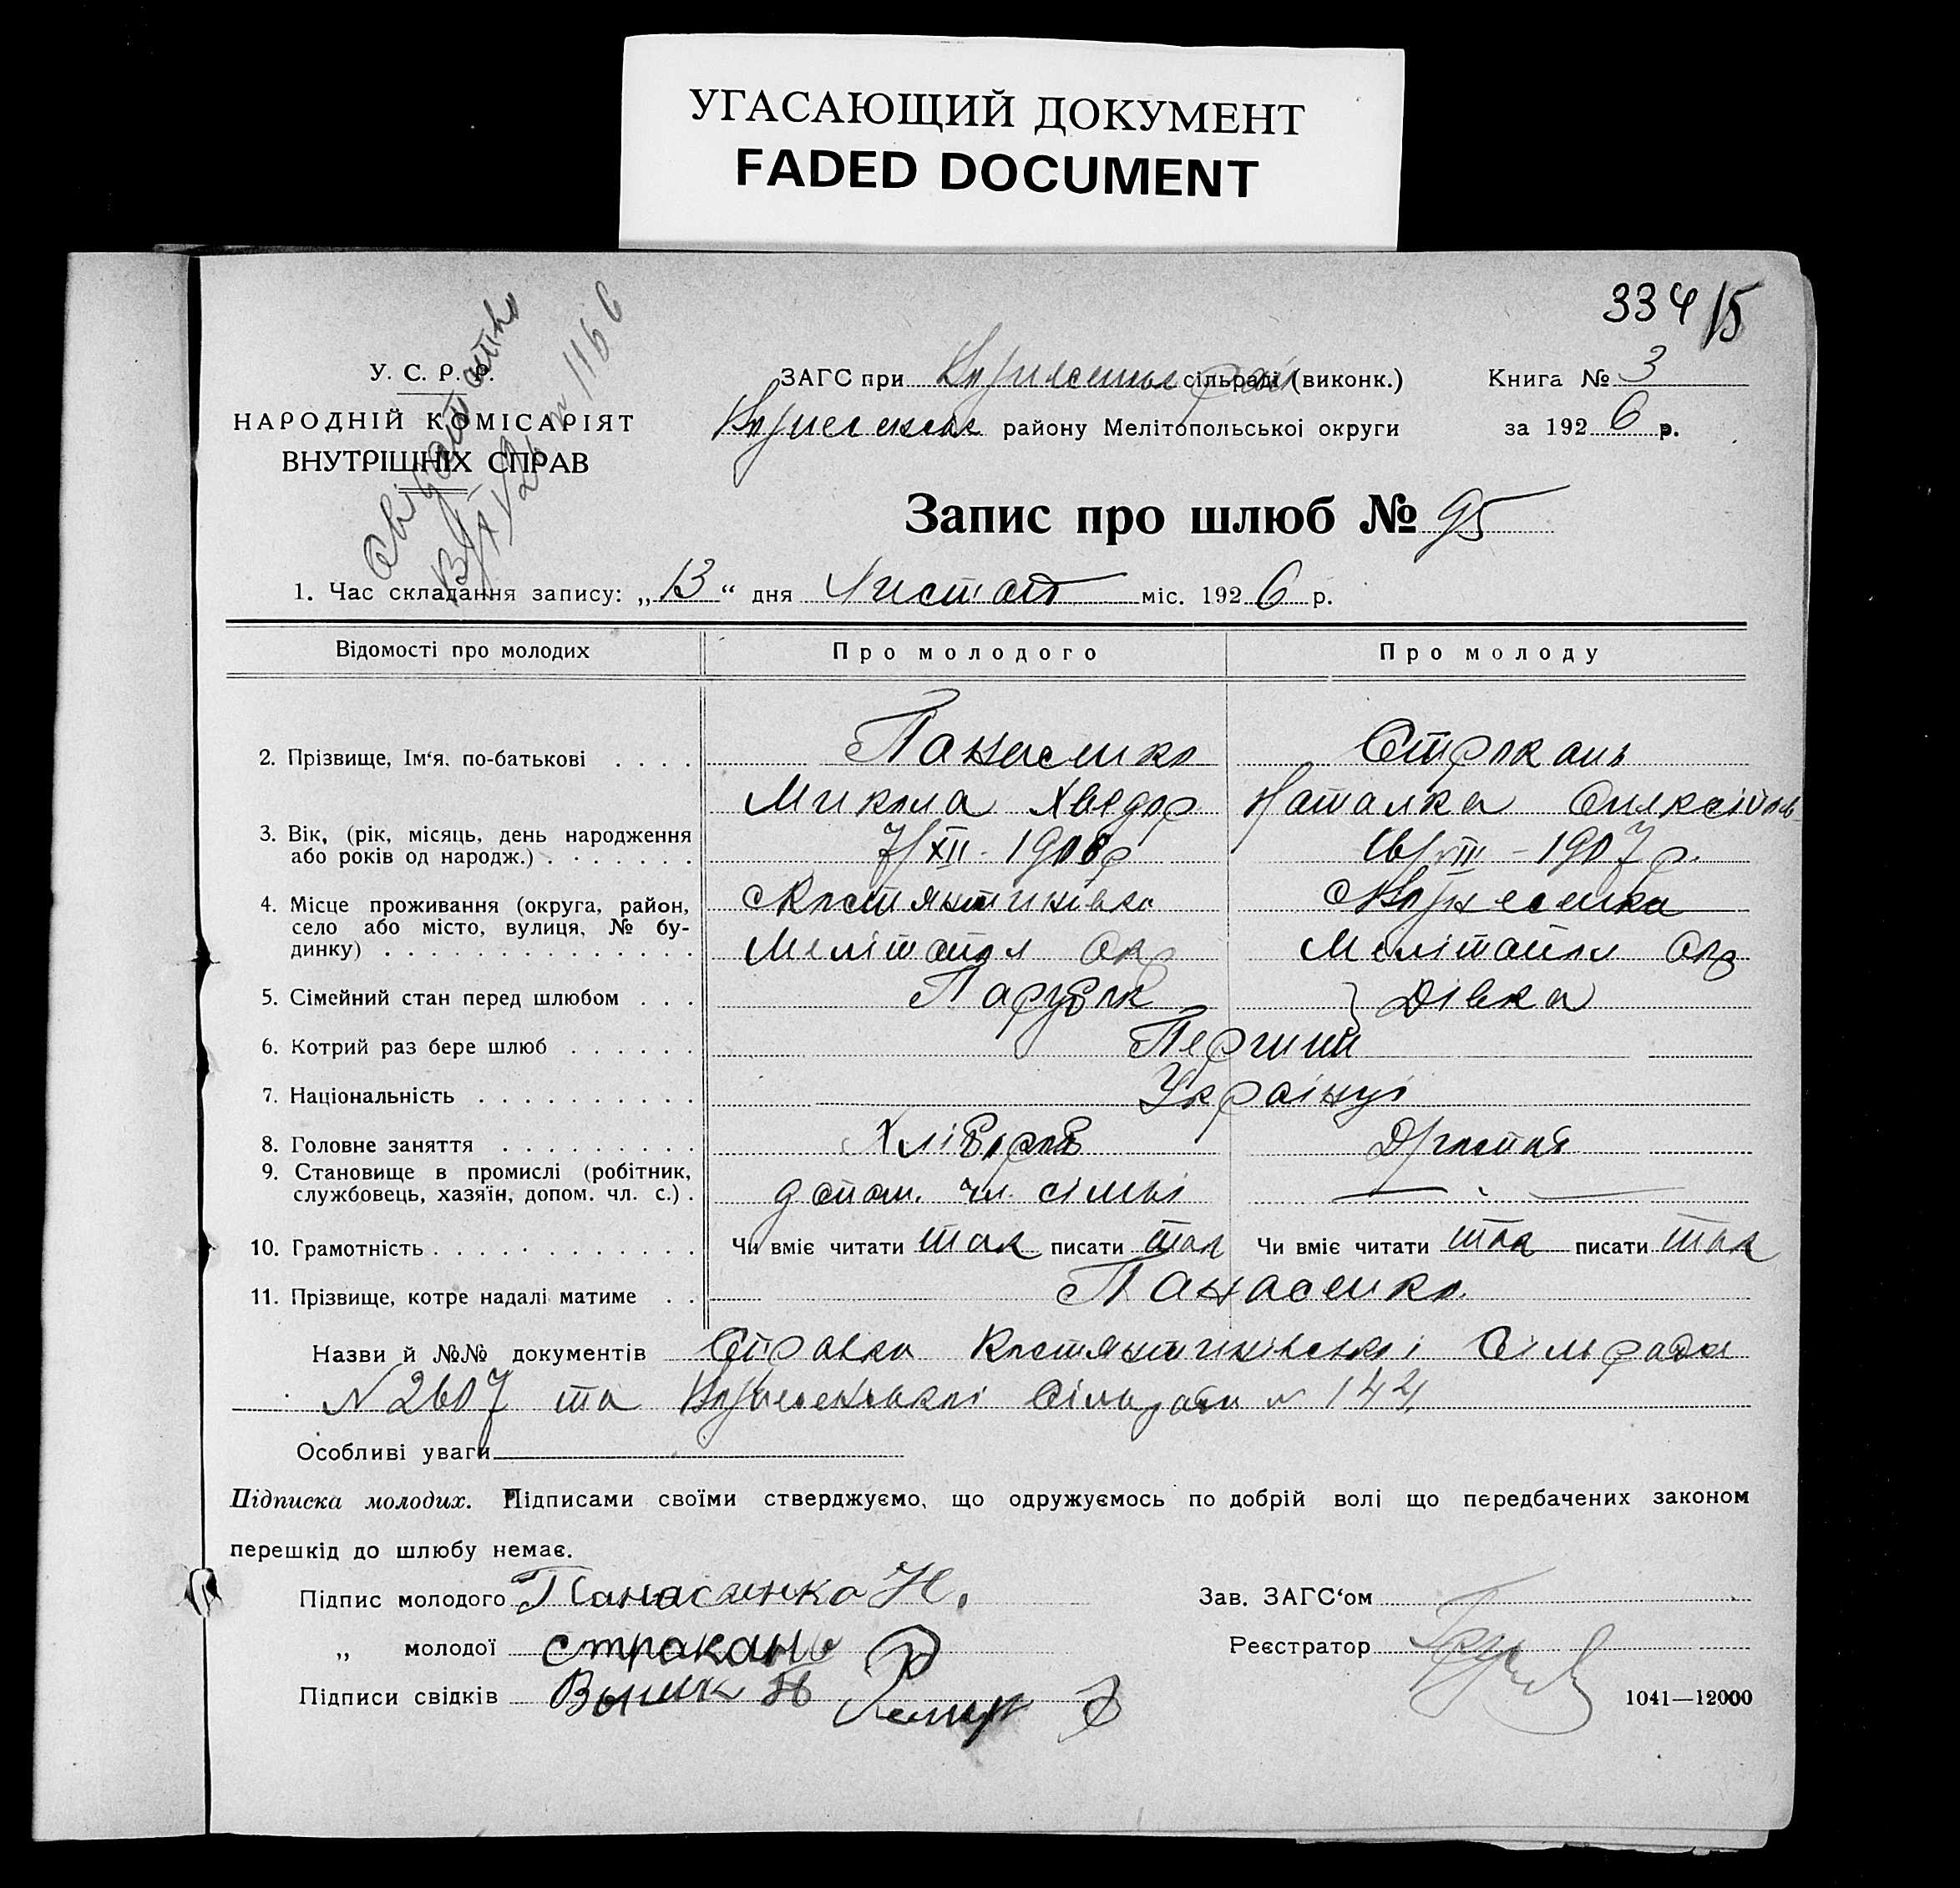 УГАСАЮЩИЙ ДОКУМЕНТ
FADED DOCUMENT
334 15
У. С. Р. Р.
НАРОДНІЙ КОМІСАРІЯТ
ВНУТРІШНІХ СПРАВ
№ 1166
ЗАГС при сільраді (виконк.)
району Мелітопольської округи
Книга № 3
за 1926 р.
Запис про шлюб № 95
1. Час складання запису: „13“ дня Листоп міс. 1926 р.
Відомості про молодих
Про молодого
Про молоду
2. Прізвище, Ім‘я. по-батькові . . . . Панасенко Строкань
Микола Хведор Наталка
3. Вік, (рік, місяць, день народження
або років од народж.) . . . . . . . 7/XII - 1908р 16/VIII - 1907 р.
4. Місце проживання (округа, район, Костянтинівка Вознесенка
село або місто, вулиця, № бу-
динку) . . . . . . . . . . . . . . Мелітопол Окр Мелітопол Окр
5. Сімейний стан перед шлюбом . . . Парубок Дівка
6. Котрий раз бере шлюб . . . . . . Перший
7. Національність . . . . . . . . . . Українці
8. Головне заняття . . . . . . . . . Хлібороб
9. Становище в промислі (робітник,
службовець, хазяїн, допом. чл. с.) . допом. чл. сімьі
10. Грамотність . . . . . . . . . . . . Чи вміє читати так писати так Чи вміє читати так писати так
11. Прізвище, котре надалі матиме . . Панасенко
Назви й №№ документів Справка Костянтинівської Сільради
№ 2607 та Вознесенської Сільради № 144
Особливі уваги
Підписка молодих. Підписами своїми стверджуємо, що одружуємось по добрій волі що передбачених законом
перешкід до шлюбу немає.
Підпис молодого Панасенко Н.
„ молодої Стракань
Підписи свідків
Зав. ЗАГС‘ом
Реєстратор
1041—12000